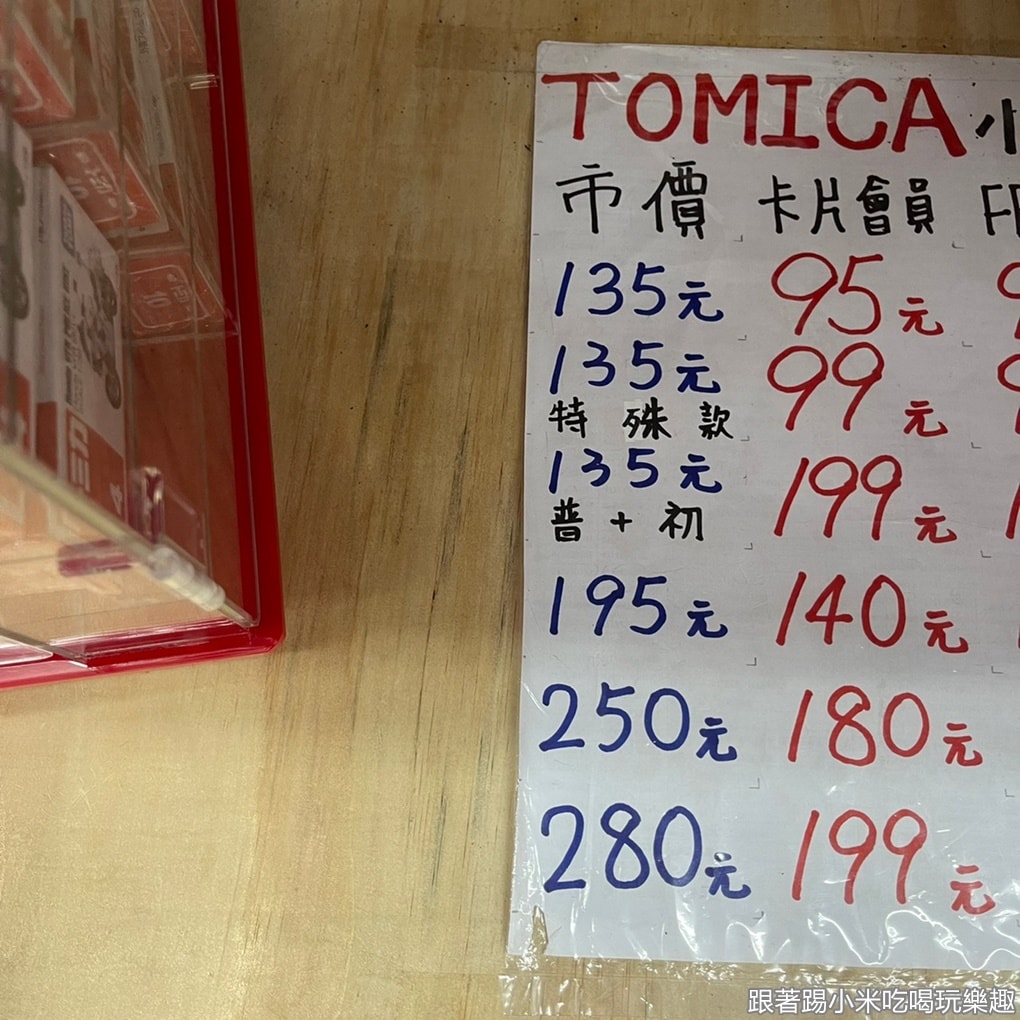 TOMICA 小
市價 卡片會員
135元 95元
135元 99元
特殊款
135元 199元
普+初
195元 140元
250元 180元
280元 199元
跟著踢小米吃喝玩樂趣